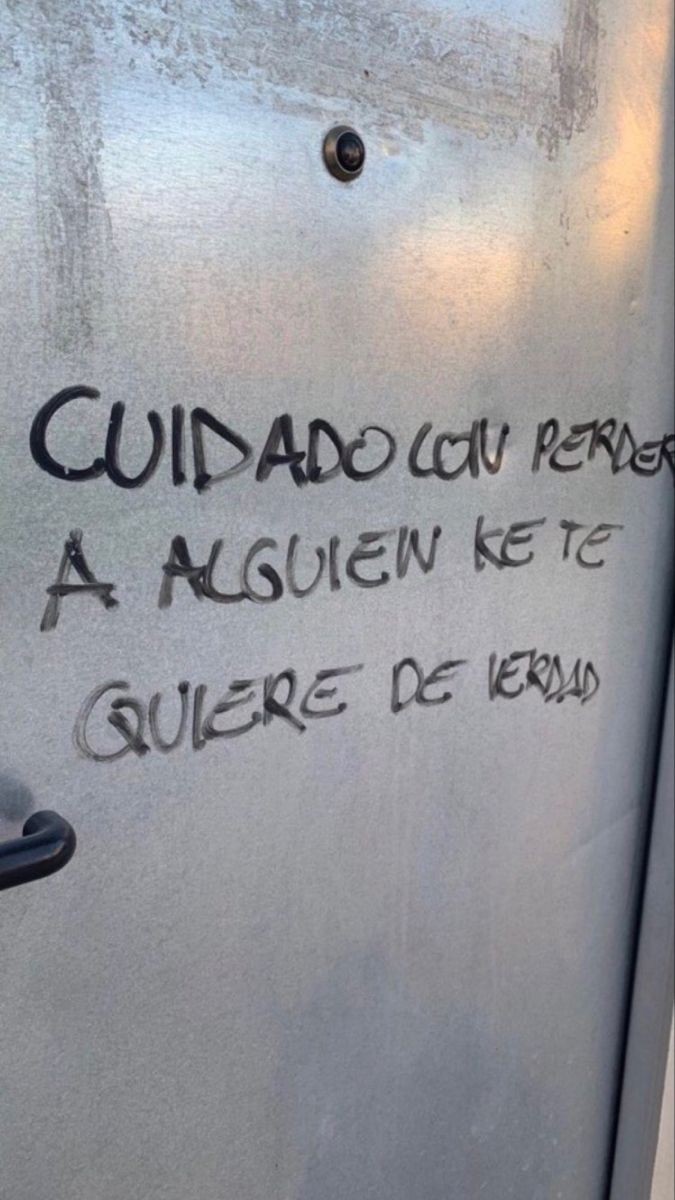 CUIDADO CON PERDER
A ALGUIEN KE TE
QUIERE DE VERDAD